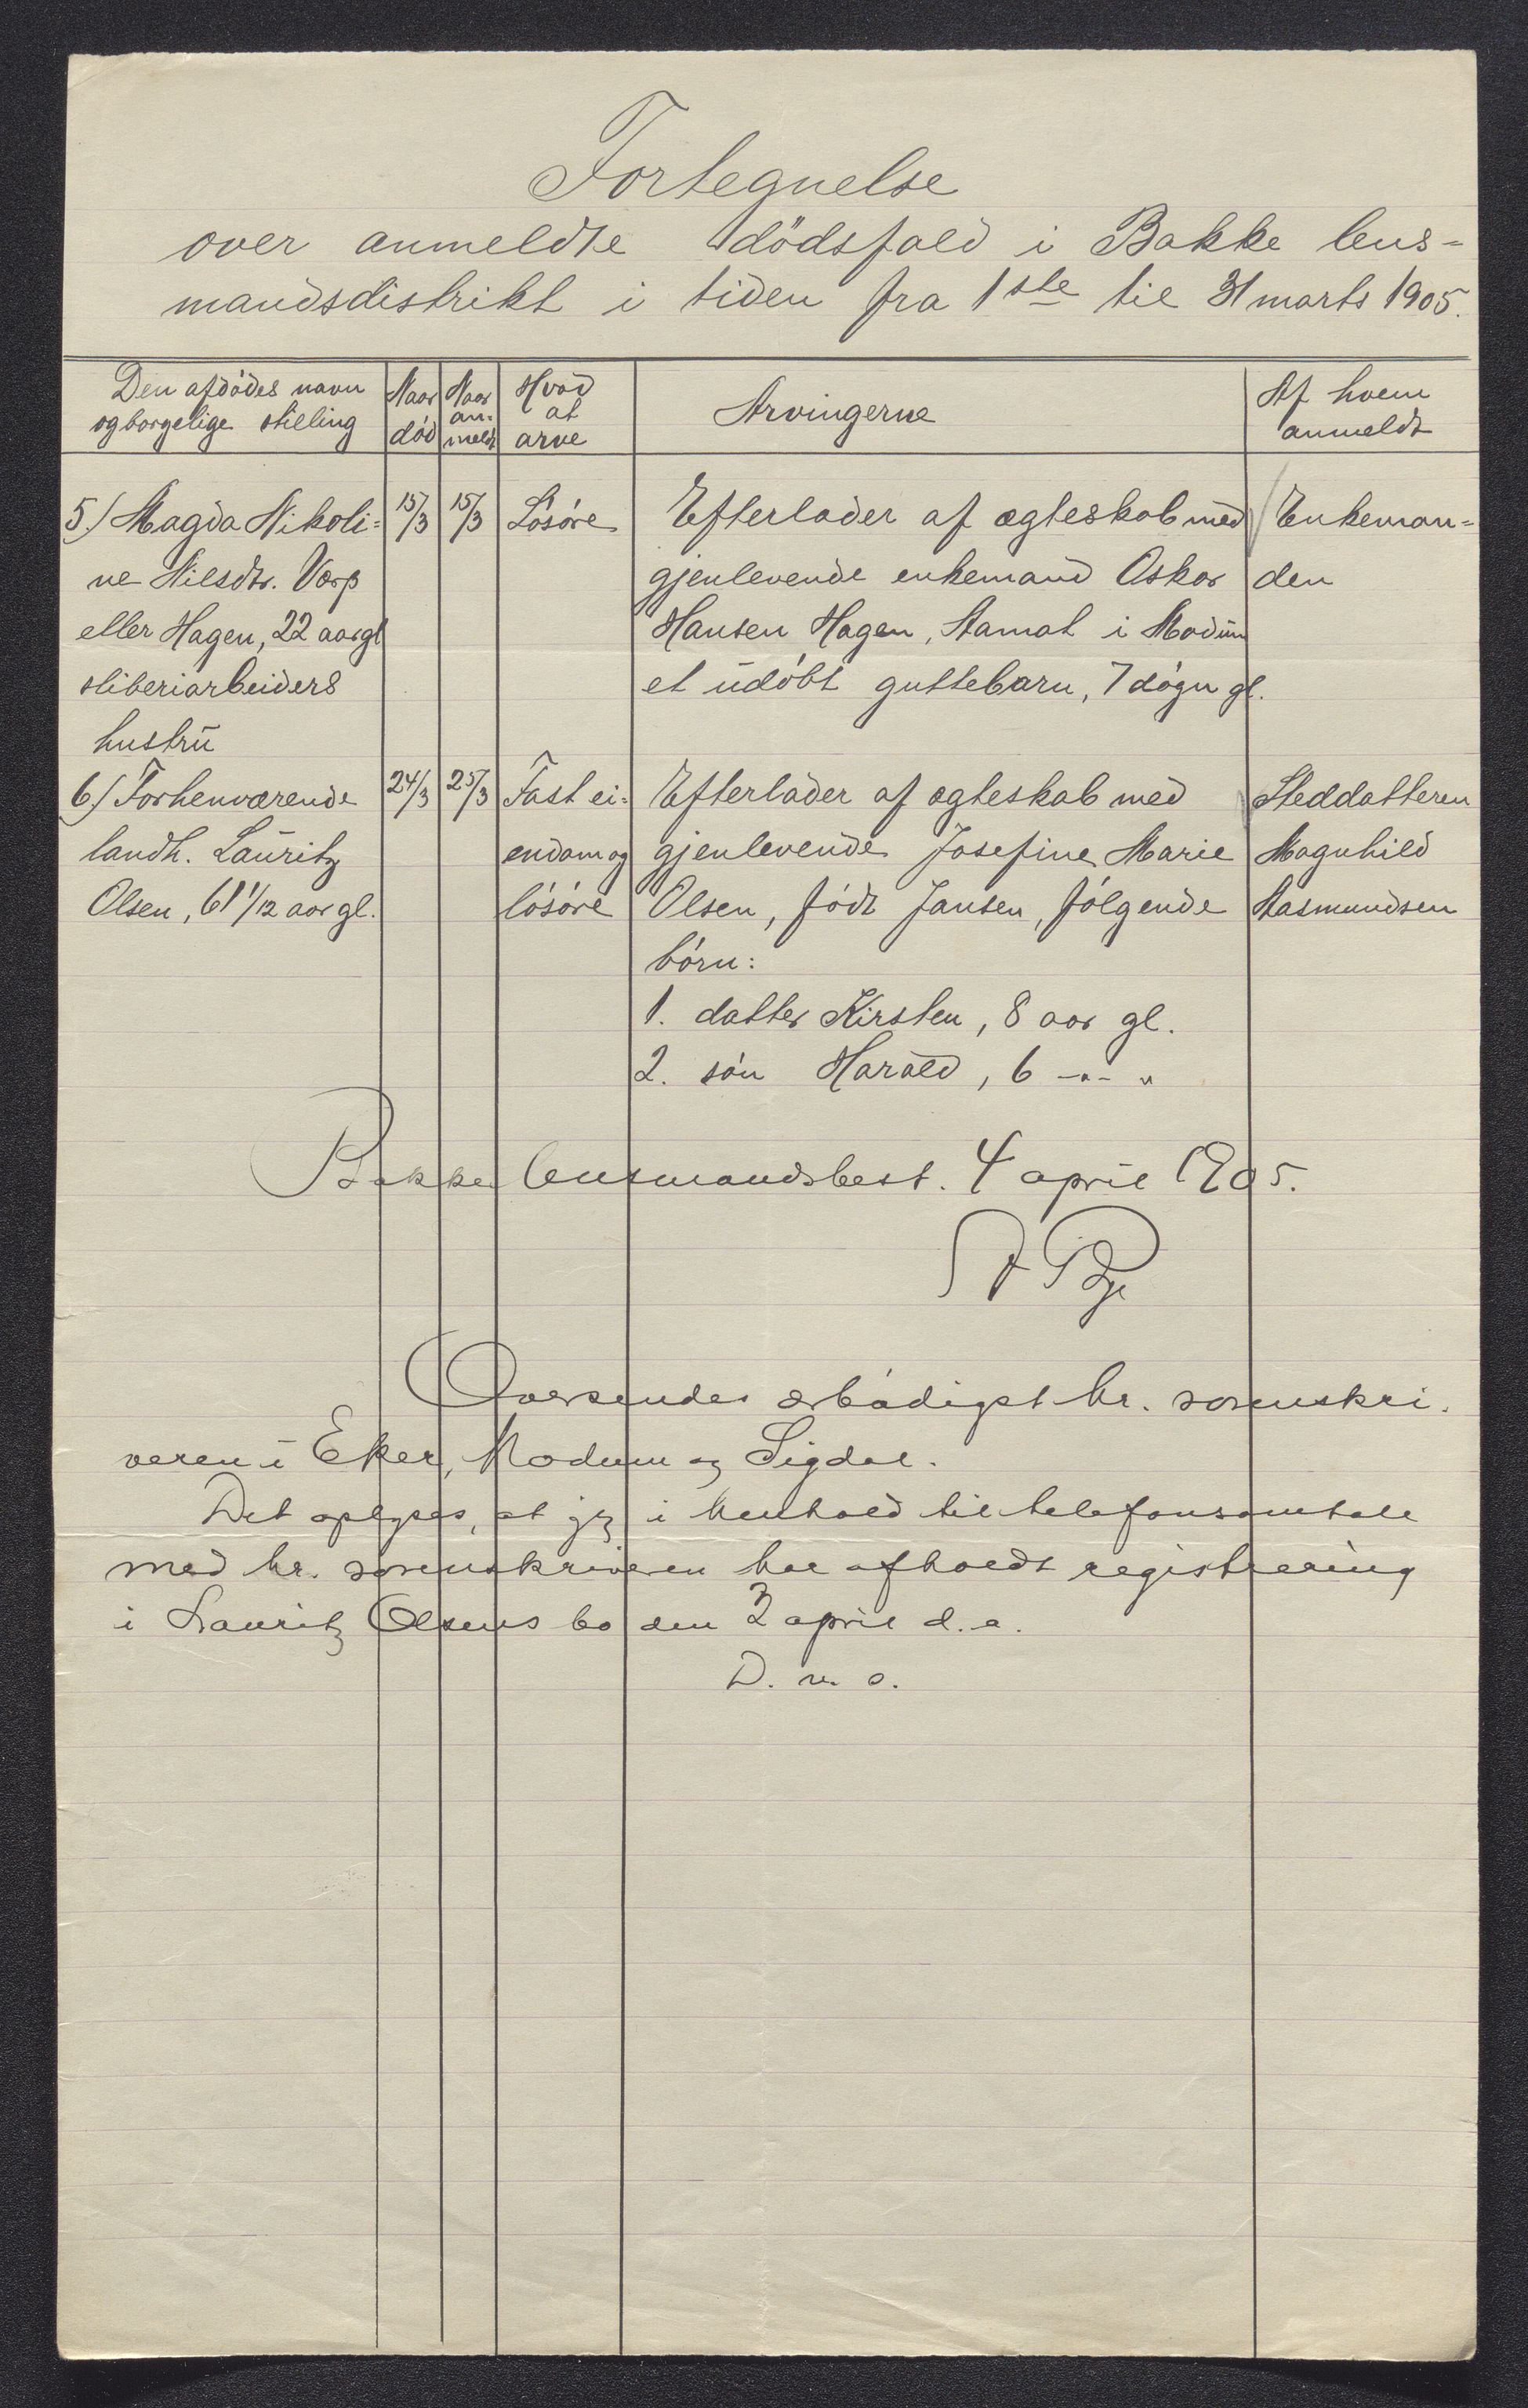 Fortegnelse
over anmeldte dödsfald i Bakke lens-
mandsdistrikt i tiden fra 1ste til 31 marts 1905.
Den afdödes navn og borgelige stilling | Naar död | Naar an-meldt | Hvad at arve | Arvingerne | Af hvem anmeldt
5.) Magda Nikoli= | 15/3 | 15/3 | Lösöre | Efterlader af ægteskab med | Enkeman=
ne Nilsdtr. Varp | gjenlevende enkemand Oskar | den
eller Hagen, 22 aar gl. | Hansen Hagen, Aamot i Modum
sliberiarbeiders | et udöbt guttebarn, 7 dögn gl.
hustru
6.) Forhenværende | 24/3 | 25/3 | Fast ei= | Efterlader af ægteskab med | Steddatteren
landh. Lauritz | endom og | gjenlevende Josefine Marie | Magnhild
Olsen, 61 1/12 aar gl. | lösöre | Olsen, födt Jansen, fölgende | Aasmundsen
börn:
1. datter Kirsten, 8 aar gl.
2. sön Harald, 6 -"- "
Bakke lensmandsbest. 4 april 1905.
Oversendes ærbödigst hr. sorenskri.
veren i Eker, Modum og Sigdal.
Det oplyses, at jeg i henhold til telefonsamtale
med hr. sorenskriveren har afholdt registrering
i Lauritz Olsens bo den 3 april d. a.
D. u. s.